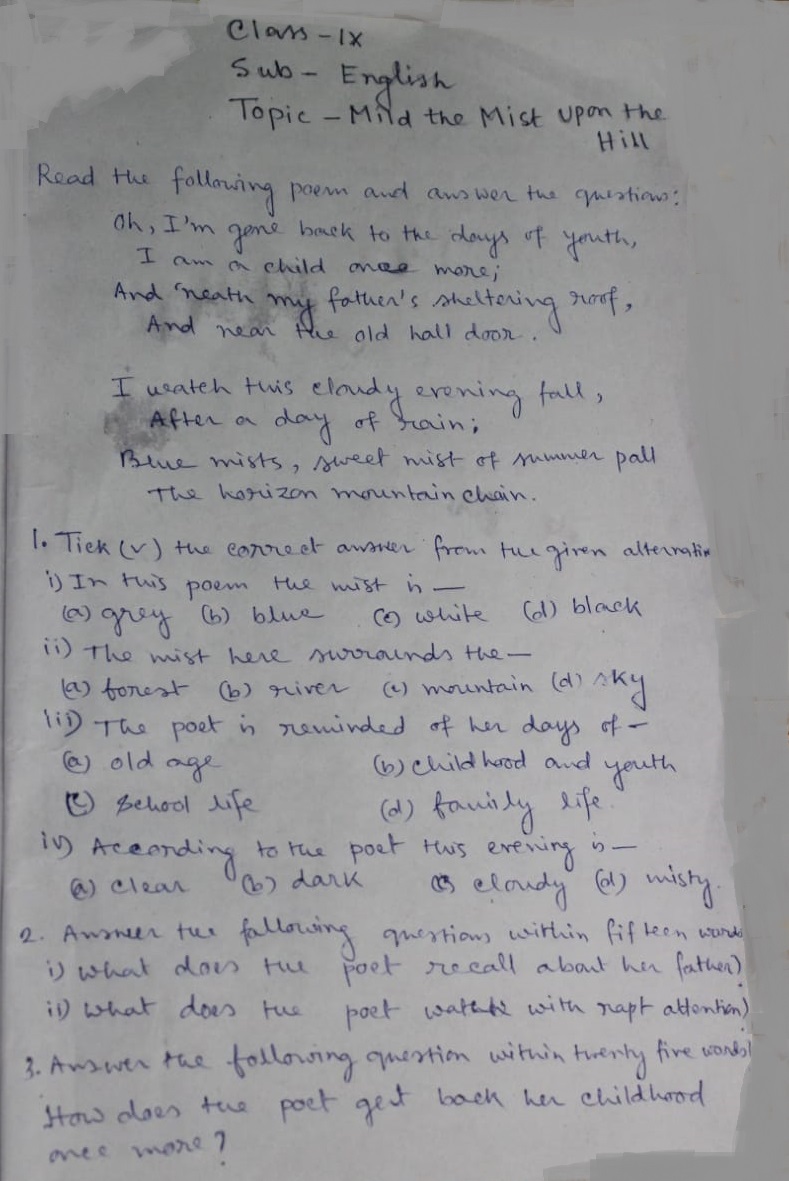 Class - IX
Sub - English
Topic - Mild the Mist upon the
Hill
Read the following poem and answer the questions:
Oh, I'm gone back to the days of youth,
I am a child once more;
And 'neath my father's sheltering roof,
And near the old hall door.
I watch this cloudy evening fall,
After a day of rain;
Blue mists, sweet mist of summer pall
The horizon mountain chain.
1. Tick (v) the correct answer from the given alternativ
i) In this poem the mist is —
(a) grey (b) blue (c) white (d) black
ii) The mist here surrounds the —
(a) forest (b) river (c) mountain (d) sky
iii) The poet is reminded of her days of -
(a) old age (b) childhood and youth
(c) School life (d) family life.
iv) According to the poet this evening is —
(a) clear (b) dark (c) cloudy (d) misty.
2. Answer the following questions within fifteen words
i) What does the poet recall about her father?
ii) What does the poet with rapt attention?
3. Answer the following question within twenty five words
How does the poet get back her childhood
once more?